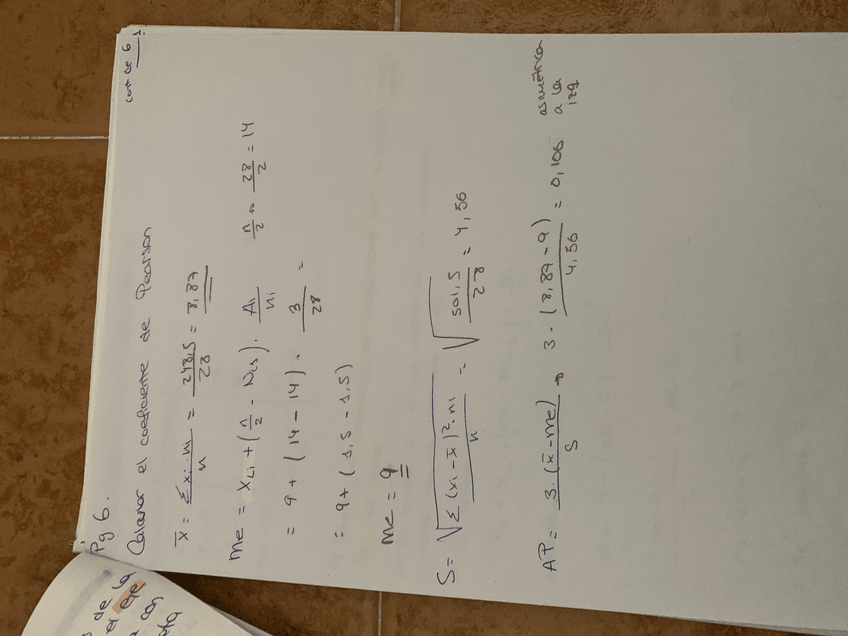 cont de 6
Pg 6.
Calcular el coeficiente de Pearson
x̄ = Σxi·ni / n = 248,5 / 28 = 8,87
Me = XLi + (n/2 - Nis) · Ai / ni n/2 → 28/2 = 14
= 9 + (14 - 14) · 3 / 28 =
= 9 + (1,5 - 1,5)
Me = 9
S = √(Σ(xi - x̄)²·ni / n) = √(501,5 / 28) = 4,56
AP = 3·(x̄ - Me) / S → 3·(8,87 - 9) / 4,56 = 0,106 asimétrica
a la
izq
s de la
el eje
a con